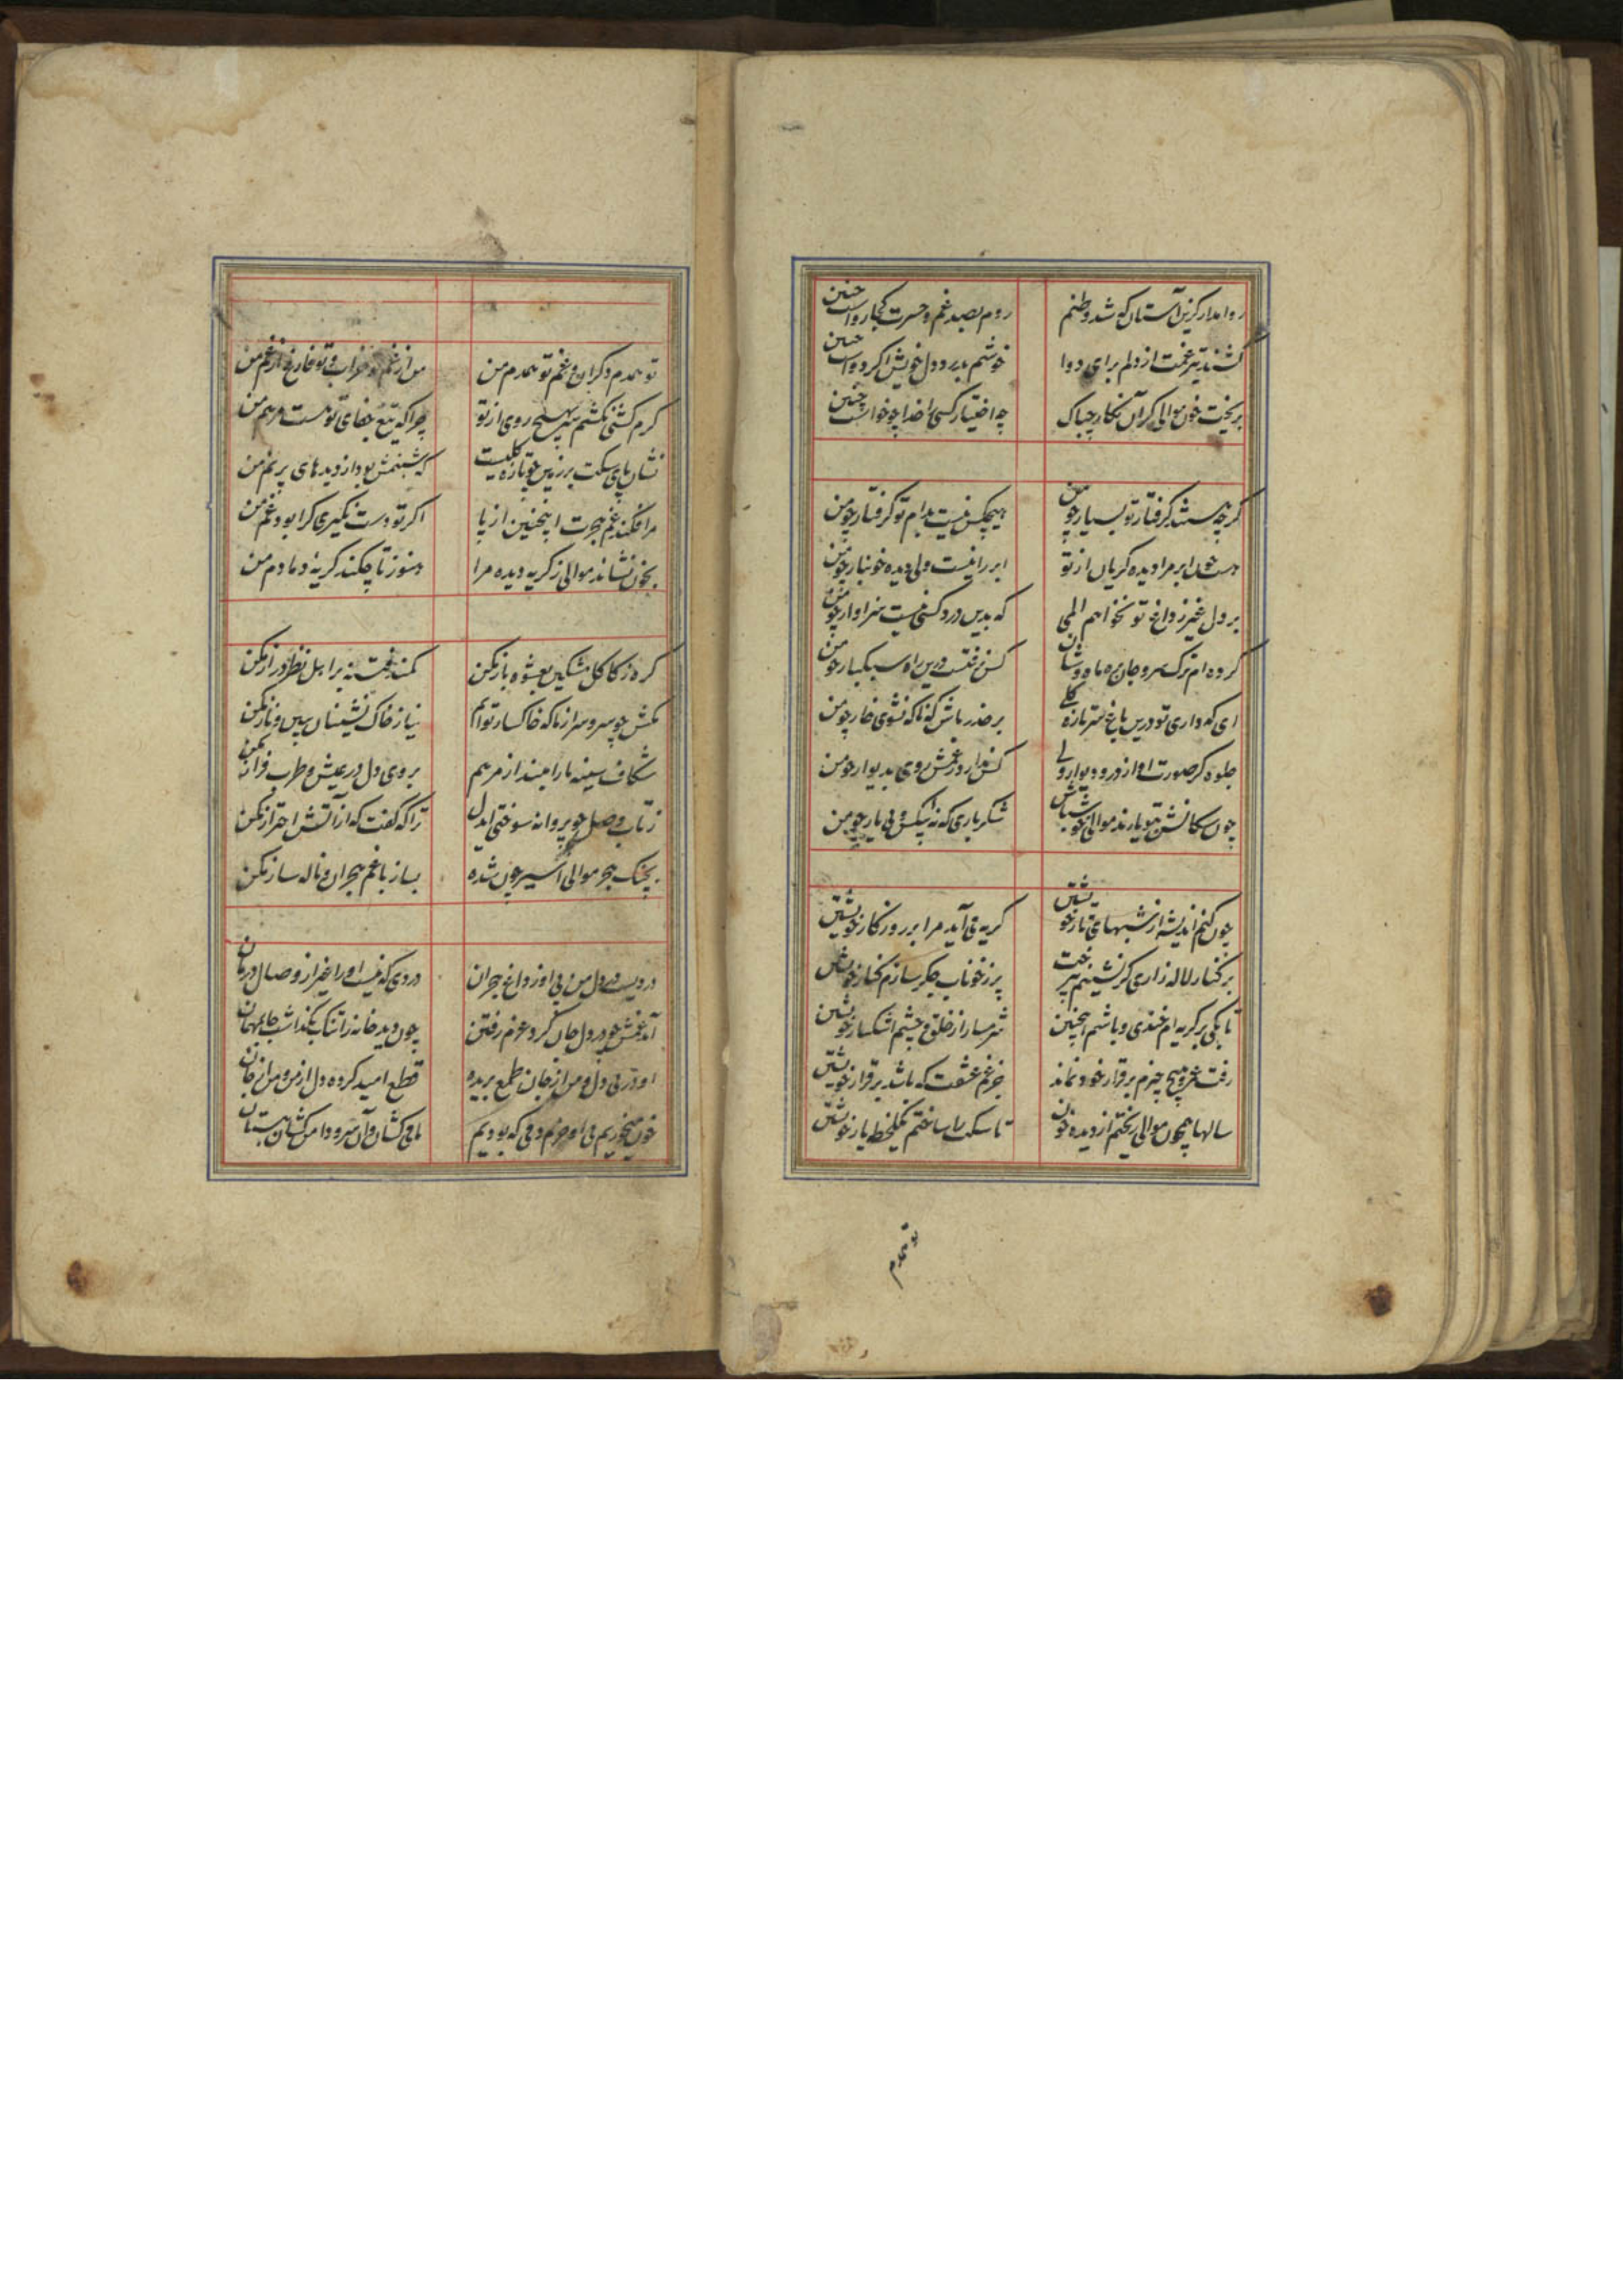 روا مدار کزین آستان که شد وطنم روم بصد غم و حسرت کجا رواست چنین
کشند تیر غمت از دلم برای دوا خوشم بدرد دل خویش اگر دواست چنین
بریخت خون موالی کر آن نکار چه باک چه اختیار کسی را خدا چو خواست چنین
کرچه هستند کرفتار تو بسیار چو من هیچکس نیست بدام تو کرفتار چو من
هست چون ابر مرا دیده کریان از تو ابر را نیست ولی دیده خونبار چو من
بر دل غیر ز داغ تو نخواهم المی که بدین درد کسی نیست سزاوار چو من
کرده ام ترک سر و جان بره ماه وشان کس نرفتست درین راه سبکبار چو من
ای که داری تو درین باغ سر تازه کلی بر حذر باش که ناکه نشوی خار چو من
جلوه کر صورت او از در و دیوار ولی کس ندارد ز غمش روی بدیوار چو من
چون سکانش بتو یارند موالی خوش باش شکر باری که نه بیکس و بی یار چو من
چون کنم اندیشه از شبهای تار خویشتن کریه می آید مرا بر روزکار خویشتن
بر کنار لاله زاری کر نشینم پر ز خوناب جکر سازم کنار خویشتن
تا بکی بر کریه ام خندی و باشم اینچنین شرمسار از خلق و چشم اشکبار خویشتن
رفت عمر و هیچ چیزم بر قرار خود نماند جز غم عشقت که باشد بر قرار خویشتن
سالها همچون موالی ریختم از دیده خون تا سکت را ساختم یکلحظه یار خویشتن
تو همدم
تو همدم دکران و غم تو همدم من من از غم تو خراب و تو فارغ از غم من
کرم کشی نکشم سر بهیچ روی از تو چرا که تیغ جفای تو هست مرهم من
نشان پای سکت بر زمین چو تازه کلیست که شبنمش بود از دیدهای پر نم من
مرا فکند غم هجرت اینچنین از پا اکر تو دست نکیری کرا بود غم من
بخون نشاند موالی ز کریه دیده مرا هنوز تا چکند کریهٔ دمادم من
کره ز کاکل مشکین بعشوه باز مکن کمند فتنه بر اهل نظر دراز مکن
مکش چو سرو سر از ما که خاکسار توایم نیاز خاک نشینان ببین و ناز مکن
شکاف سینه ما را مبند از مرهم بروی دل در عیش و طرب فراز مکن
ز تاب وصل چو پروانه سوختی ایدل ترا که کفت که از آتش احتراز مکن
بچنک هجر موالی اسیر چون شده بساز با غم هجران و ناله ساز مکن
دردیست در دل من بی او ز داغ هجران دردی که نیست او را غیر از وصال درمان
آمد غمش چو در دل جان کرد عزم رفتن چون دید خانه را تنک بکذاشت جا بمهمان
او در پی دل و من از جان طمع بریده قطع امید کرده دل از من و من از جان
خون میخوریم بی او خرم دمی که بودیم ما می کشان و آن سرو دامن کشان ببستان